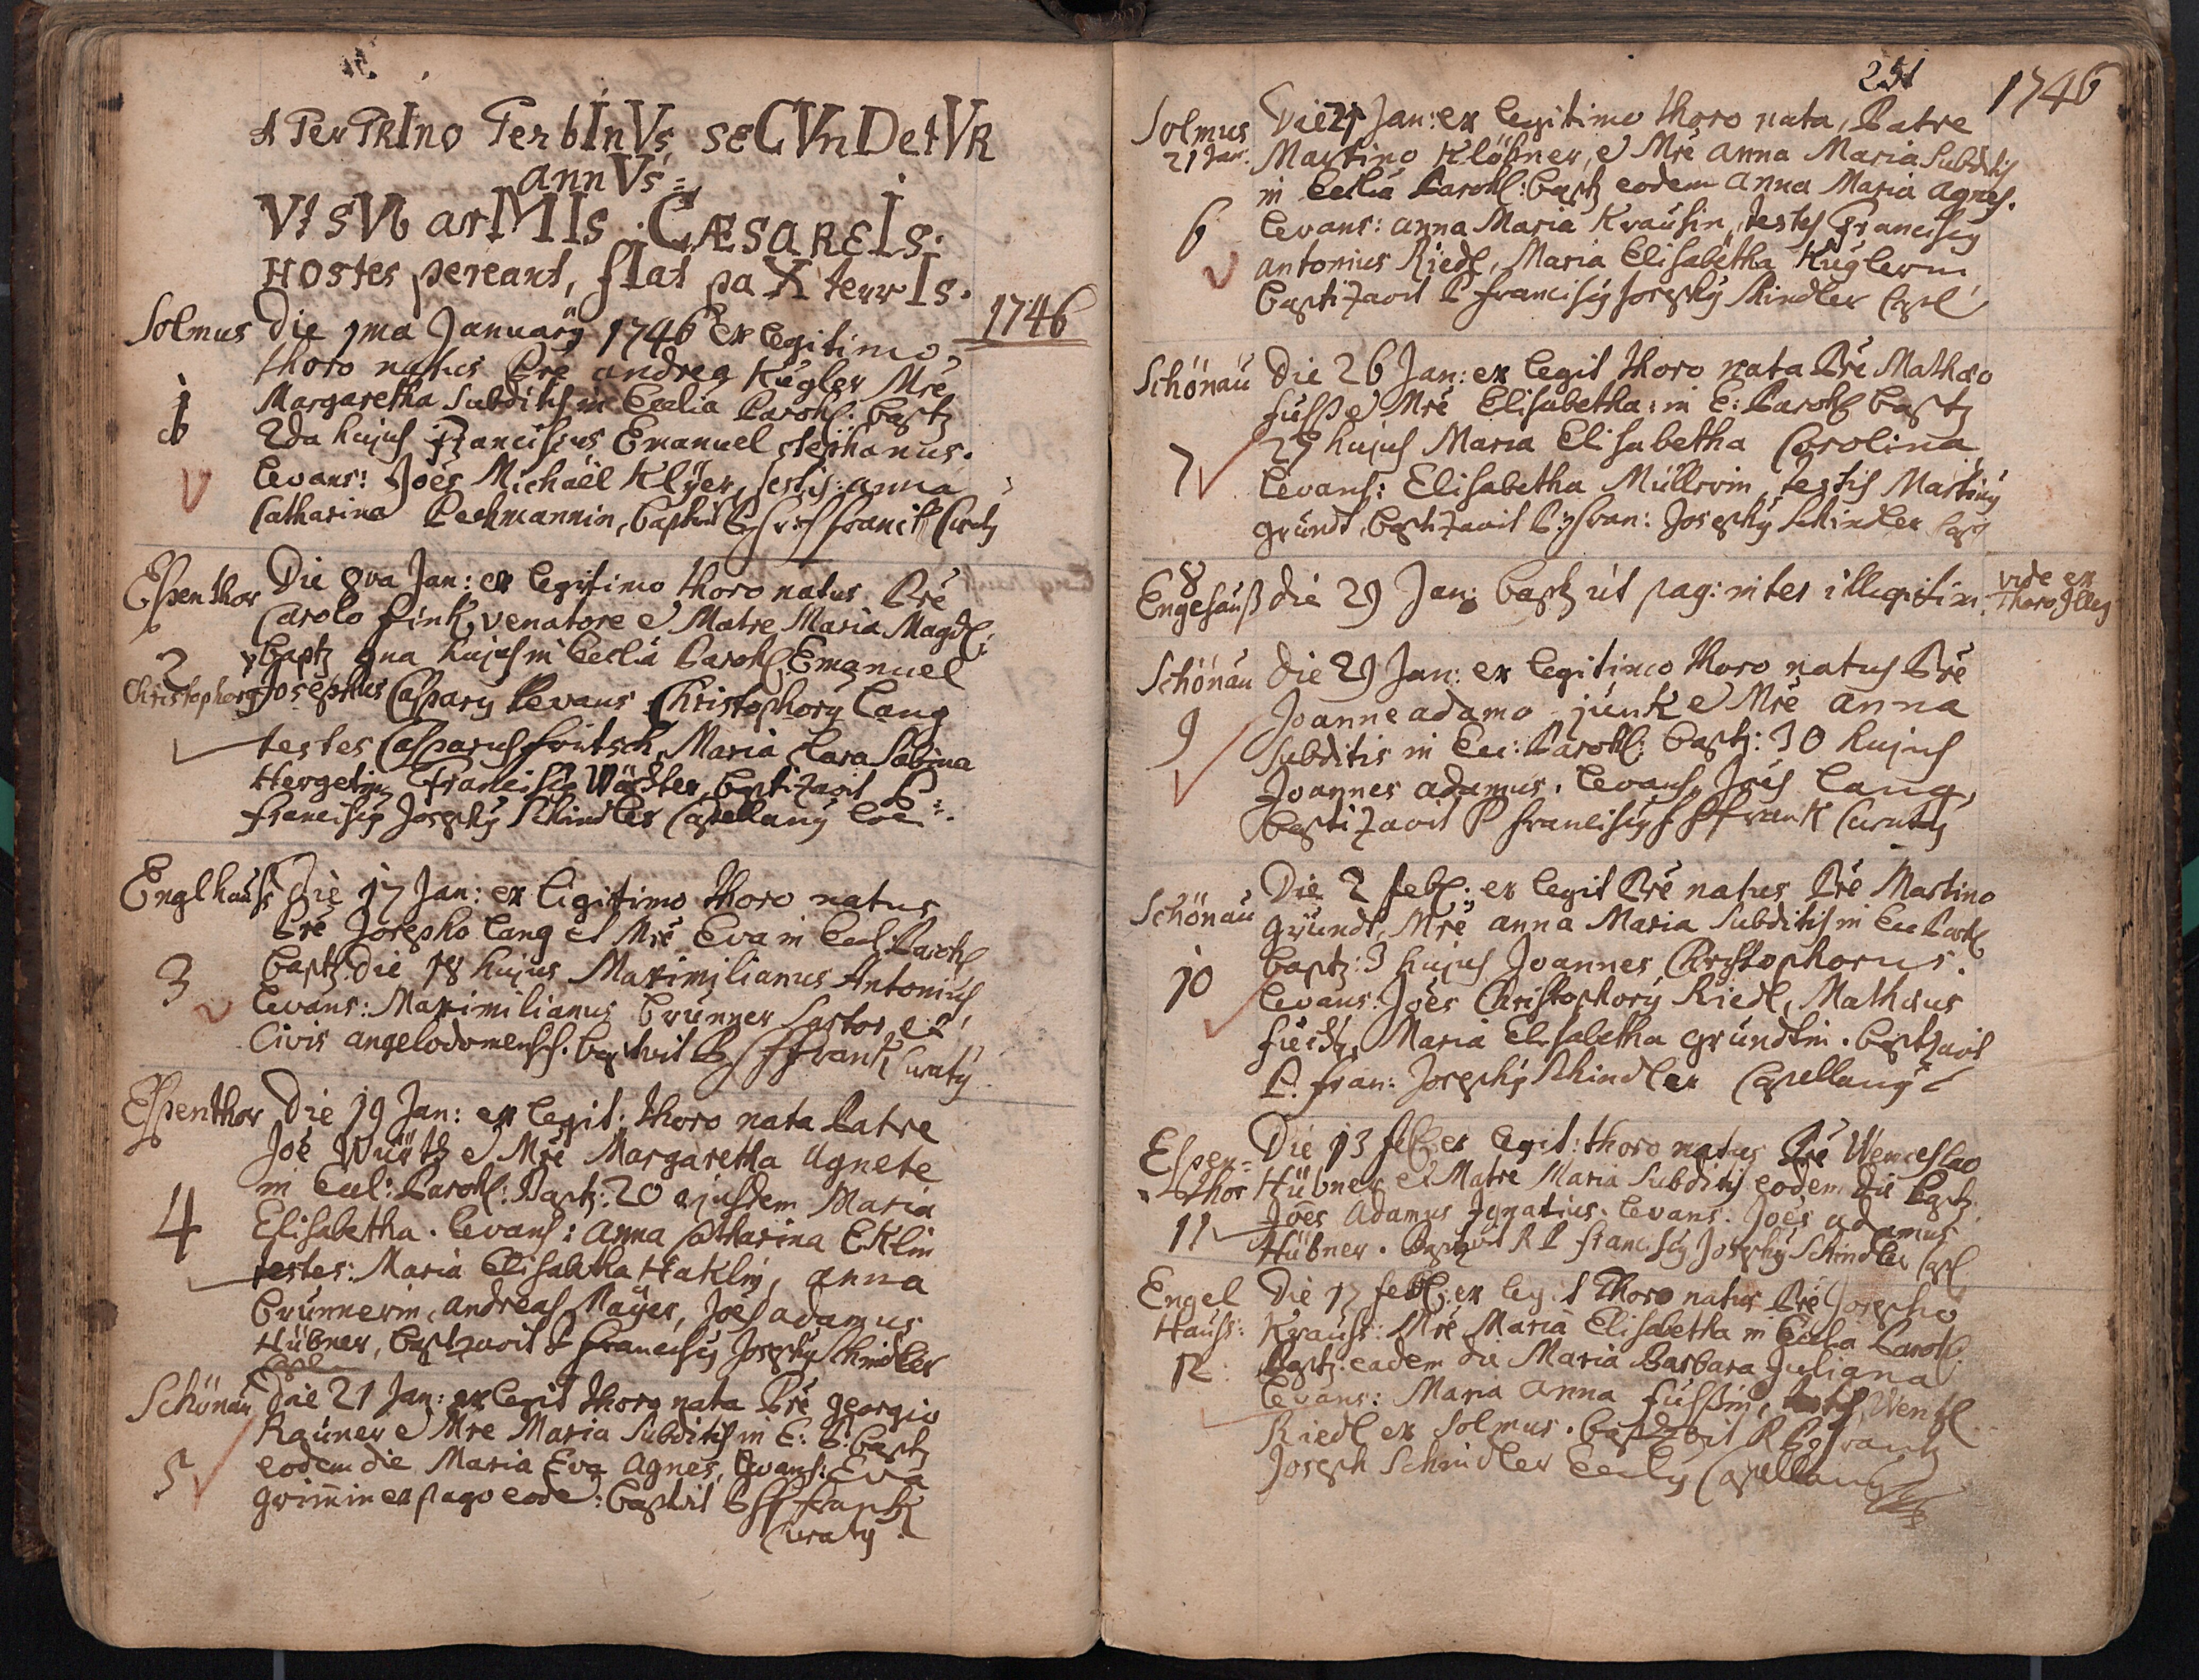 A TerTRIno TerbInVs seCVnDetVR
annVs =
VtsVb arMIs CÆSAREIs:
Hostes pereant, fIat paX terrIs.
1746
Solmus Die 1ma January 1746 Ex legitimo
thoro natus Pre Andrea Kugler Mre
Margaretha Subditis in Ecclia ParoHl: baptz
1
2da hujus Franciscus Emanuel Stephanus.
Levans: Joes Michaël Klÿer, testis: anna
Catharina Peckmannin, 
Espenthor Die 8va Jan: ex legitimo thoro natus Pre
Carolo Fink venatore et Matre Maria Magdl:
2
baptz 9na hujus in Ecclia Parohl Emanuel
Christophorus Josephus Caspary Levans Christophory Lang
testes Casparus Fritsch, Maria Clara Sabina
Hergetin, Franciscus Wächter, baptizavit P:
Franciscus Josephy Schindler Capellany loci.
Englhauß Die 17 Jan: ex ligittimo thoro natus
Pre Josepho Lang et Mre Eva in Eccl: Parohl
3
baptz: die 18 hujus Maximilianus Antonius,
Levans: Maximilianus Brunner Sartor et
Civis angelodomensis. 
Espenthor Die 19 Jan: ex legit: thoro nata Patre
Joe Würtz et Mre Margaretha Agnete
in Eccl: Parohl: Baptz: 20 ejusdem Maria
4
Elisabetha. Levans: Anna Catharina Eklin
testes: Maria Elisabetha Haklin, Anna
Brunnerin, Andreas Maÿer, Joes adamus
Hübner, baptizavit P Franciscus Josephy Schindler
Schönau Die 21 Jan: ex legit thoro nata Pre Georgio
Rauner et Mre Maria Subditis in E: P: baptz
5
eodem die Maria Eva Agnes, Levans: Eva
Grimin ex pago eode: 
Curaty.
251
1746
Solmus Die 21 Jan: ex legitimo thoro nata, Patre
21 Jan. Martino Klößner, et Mre Anna Maria Subditis
in Ecclia Parohl: baptz eodem Anna Maria Agnes.
6
Levans: Anna Maria Krausin, testes Franciscus
Antonius Riedl, Maria Elisabetha Kuglerin
baptizavit P Franciscus Josephy Schindler Capl
Schönau Die 26 Jan: ex legit thoro nata Pre Mathæo
Fusß et Mre Elisabetha: in E: Parohl baptz
7
27 hujus Maria Elisabetha Carolina
Levans: Elisabetha Müllerin, testis Martiny
Gründt, baptizavit P. Fran: Josephy Schindler Cap
8
Engehauß die 29 Jan: baptz ut pag: inter illegitim.
vide ex
Thoro Illeg
Schönau Die 29 Jan: ex legitimo thoro natus Pre
Joanne adamo Junk et Mre Anna
9
Subditis in Ecc: Parohl: baptz: 30 hujus
Joannes adamus. Levans, Joes Lang,
baptizavit P Franciscus Frank Curaty
Schönau Die 2 feb: ex legit Pre natus Pre Martino
Gründt, Mre Anna Maria Subditis in Ecc Parohl
10
baptz: 3 hujus Joannes Christophorus.
Levans: Joes Christophory Riedl, Mathæus
Maria Elisabetha Gründtin. baptizavit
P. Fran: Josephy Schindler Capellany
Espen= Die 13 feb: ex legit: thoro natus Pre Wenceslao
thor Hübner et Matre Maria Subditis eodem die baptz
11
Joes Adamus Ignatius. Levans. Joes adamus
Hübner. R P Franciscus Josephy Schindler Capl
Engel Die 17 feb: ex legit Thoro natus Pre Josepho
Hauß: Krauss: Mre Maria Elisabetha in Ecclia Parohl:
12.
baptz: eadem die Maria Barbara Juliana
Levans: Maria Anna Fusßin, testis Wentzl
Riedl ex Solmus. baptizavit R P Frantz
Joseph Schindler Capellany